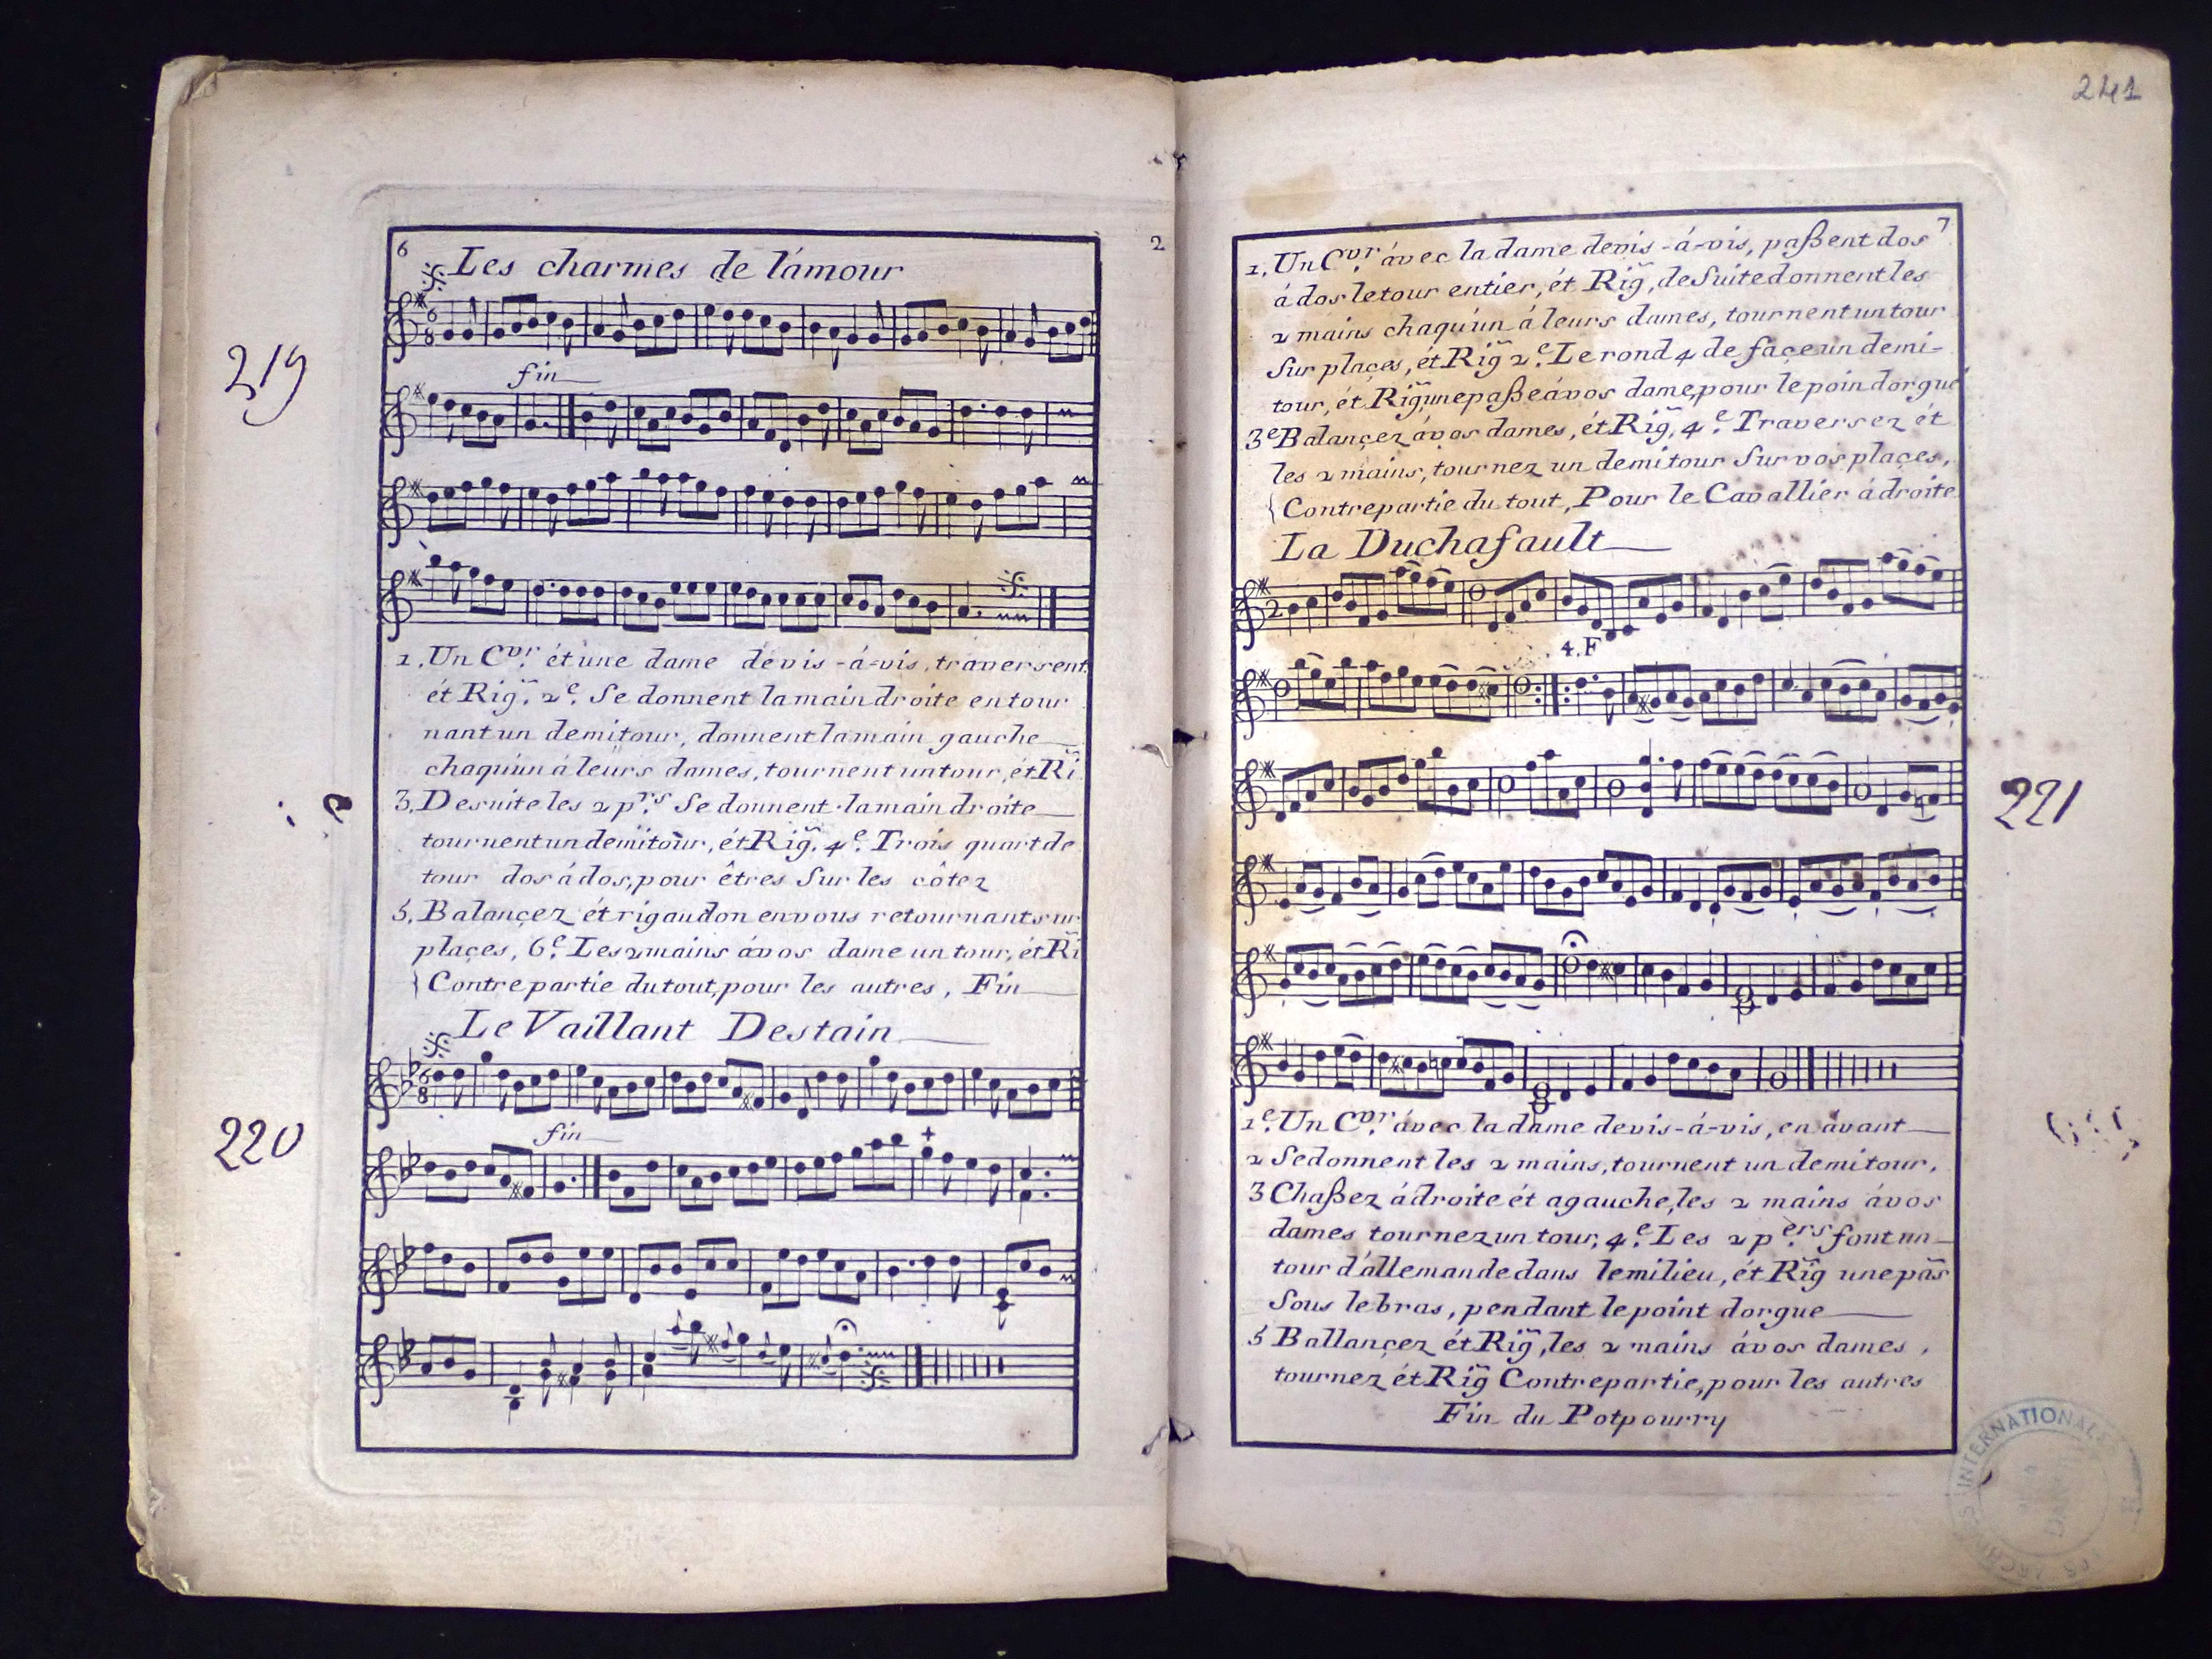 6
Les charmes de l'ámour
fin
219
1, Un Cvr. ét une dame devis-á-vis, traversent
ét Rig. 2e. Se donnent la main droite en tour
nant un demi tour, donnent la main gauche
chaqu'un á leurs dames, tournent un tour, ét Ri
3, De suite les 2 prs. Se donnent la main droite
tournent un demi tour, ét Rig. 4e. Trois quart de
tour dos á dos, pour êtres Sur les côtez
5, Balançez ét rigaudon en vous retournant sur
plaçes, 6e. Les 2 mains ávos dame un tour, ét Ri
{ Contrepartie du tout, pour les autres, Fin
Le Vaillant Destain
fin
220
2
241
7
1, Un Cvr. ávec la dame devis-á-vis, paßent dos
á dos le tour entier, ét Rig, de Suite donnent les
2 mains chaqu'un á leurs dames, tournent un tour
Sur plaçes, ét Rig 2e. Le rond 4 de façe un demi-
tour, ét Rig, une paße ávos dame, pour le poin dorgue
3e Balançez ávos dames, ét Rig, 4e. Traversez ét
les 2 mains, tournez un demi tour Sur vos plaçes,
{ Contrepartie du tout, Pour le Cavallier á droite
La Duchafault
4. F
221
1e. Un Cvr. ávec la dame devis-á-vis, en ávant
2 Se donnent les 2 mains, tournent un demi tour,
3 Chaßez á droite ét a gauche, les 2 mains ávos
dames tournez un tour, 4e. Les 2 pers. font un
tour d'állemande dans le milieu, ét Rig une pas
Sous le bras, pendant le point dorgue
5 Ballançez ét Rig, les 2 mains ávos dames,
tournez ét Rig Contrepartie, pour les autres
Fin du Potpourry
INTERNATIONALES